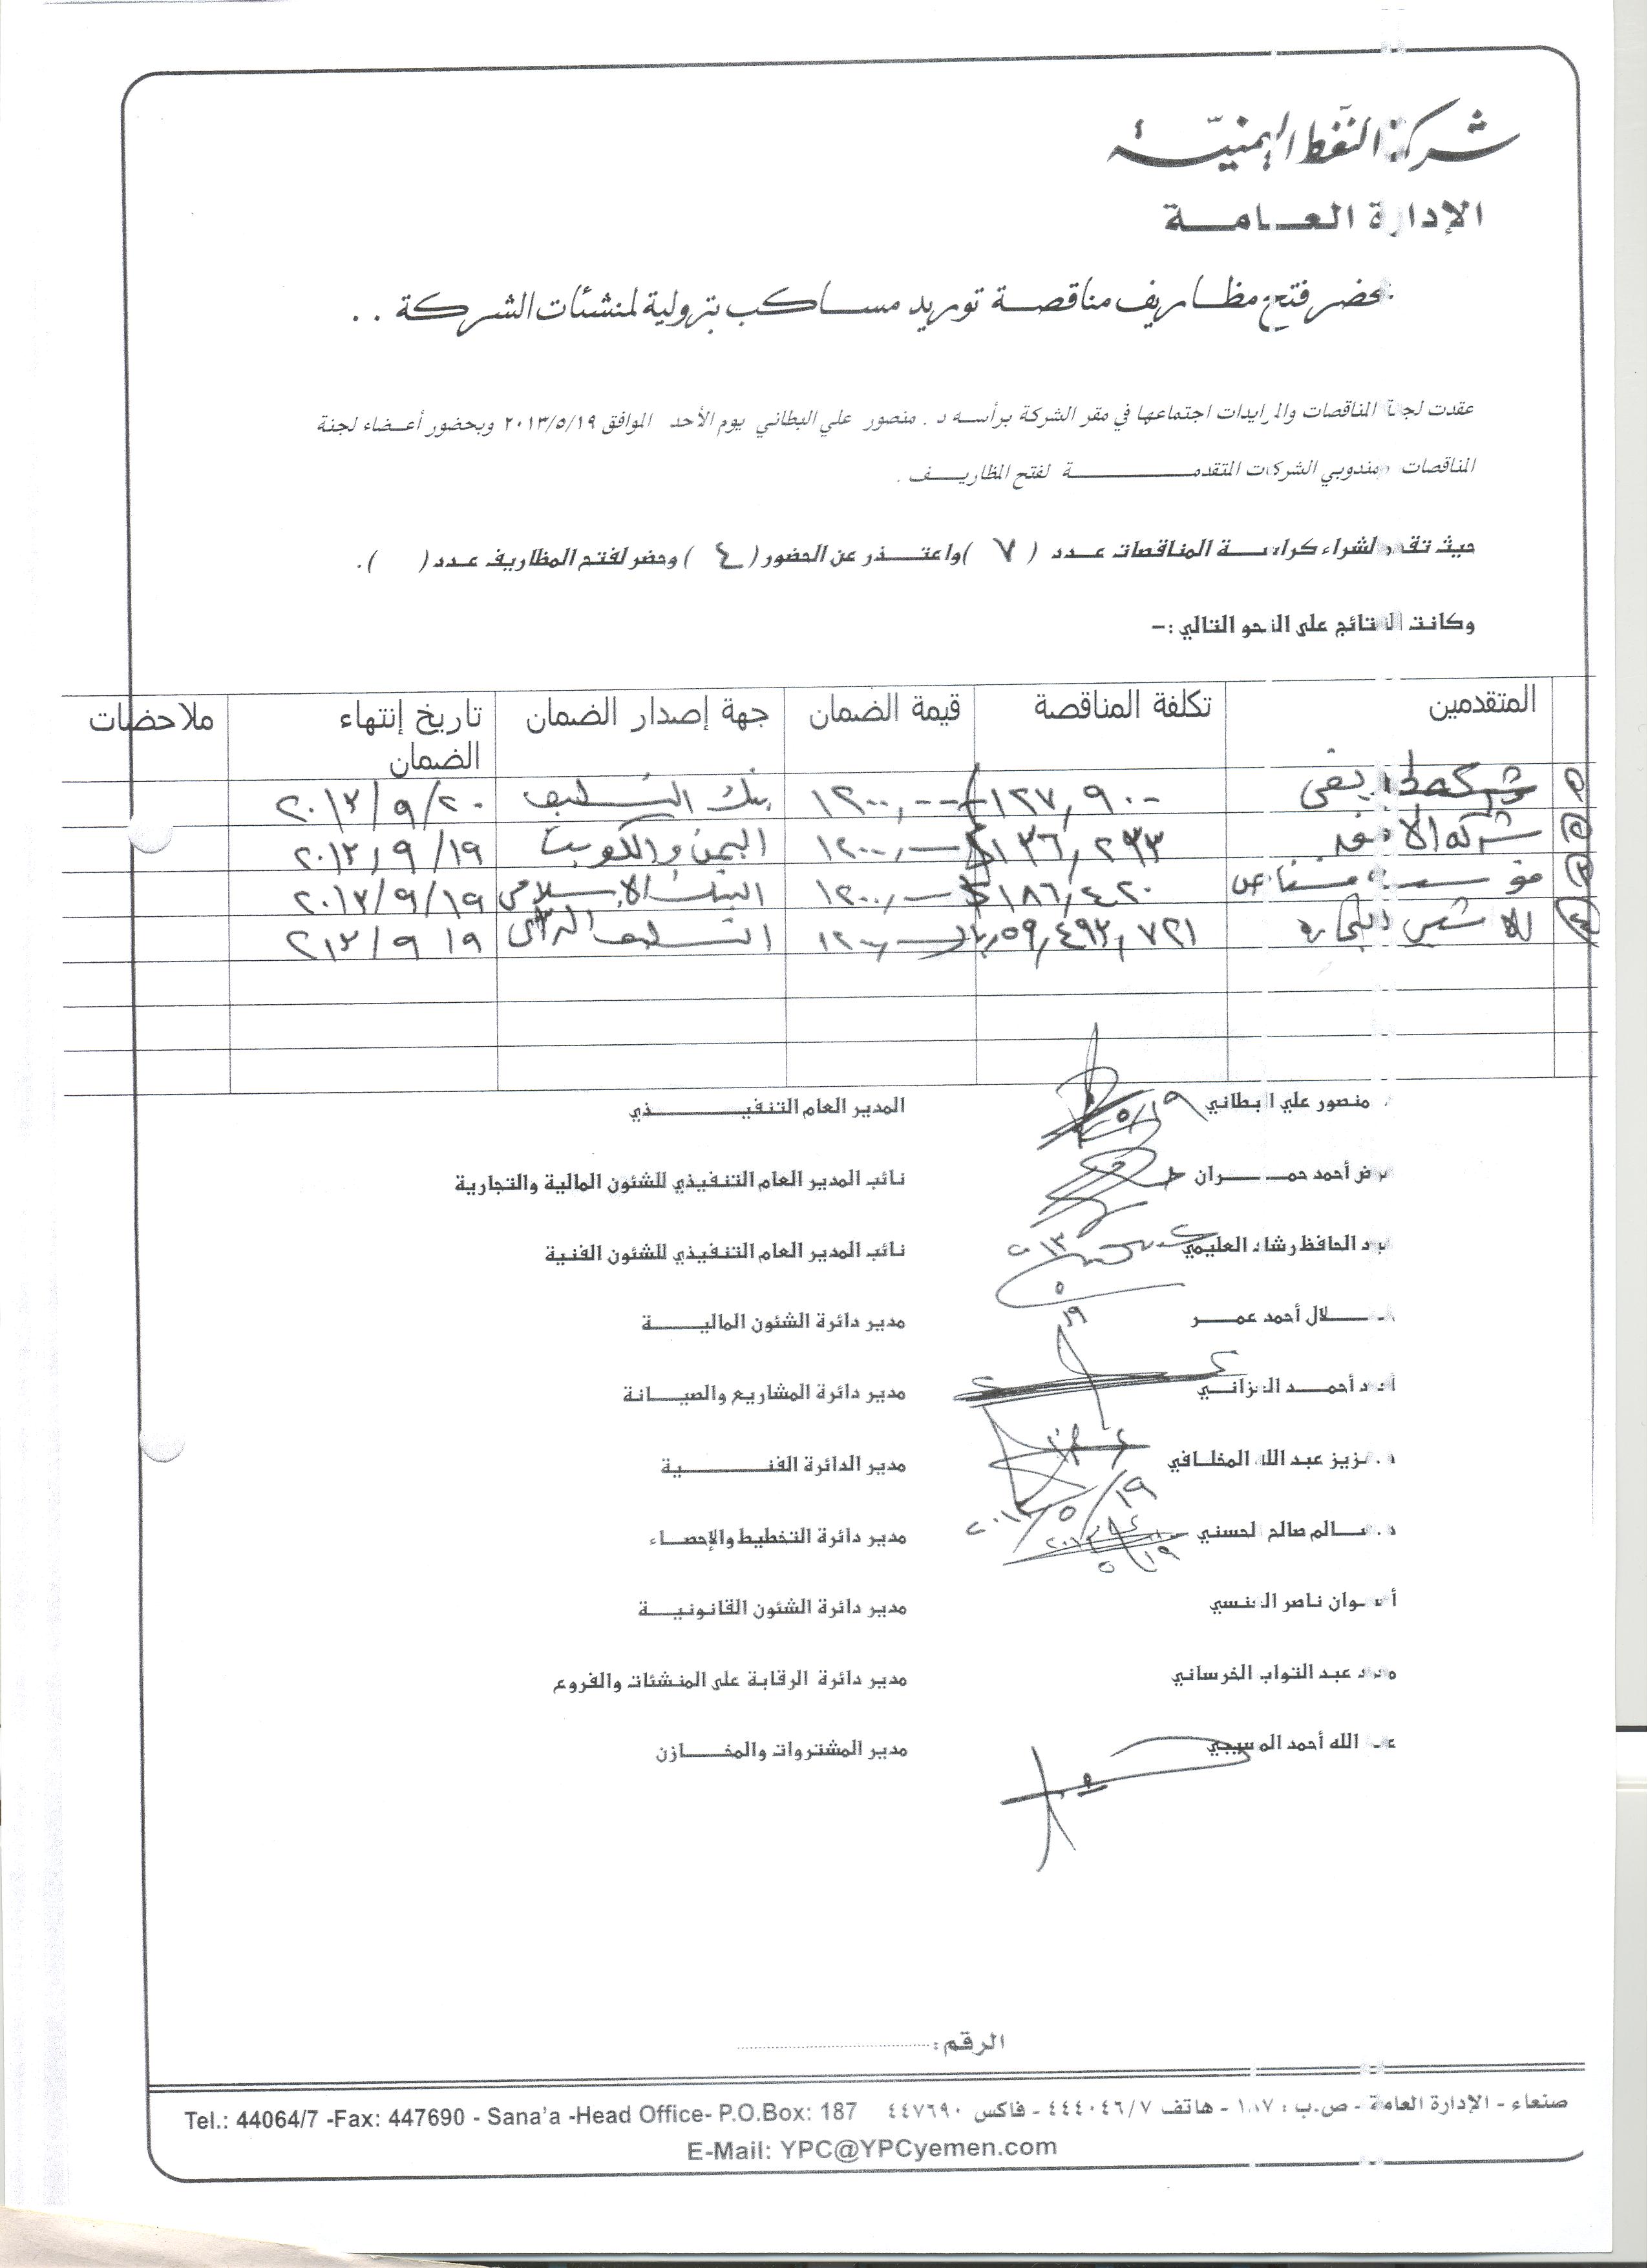 شركة النفط اليمنية
الإدارة العامة
محضر فتح مظاريف مناقصة توريد مساكب بترولية لمنشئات الشركة ..
عقدت لجنة المناقصات والمزايدات اجتماعها في مقر الشركة برأسه د . منصور علي البطاني يوم الأحد الموافق ٢٠١٣/٥/١٩ وبحضور أعضاء لجنة
المناقصات مندوبي الشركات المتقدمة لفتح المظاريف .
حيث تقدم لشراء كراسة المناقصات عدد ( ٧ ) واعتذر عن الحضور ( ٤ ) وحضر لفتح المظاريف عدد ( ) .
وكانت النتائج على النحو التالي :-
المتقدمين تكلفة المناقصة قيمة الضمان جهة إصدار الضمان تاريخ إنتهاء الضمان ملاحضات
شركة ١٢٧,٩٠٠ ١٢٠٠,٠٠ بنك التسليف ٢٠١٣/٩/٢٠
شركة ١٣٦,٢٩٣ ١٢٠٠,٠ اليمن والكويت ٢٠١٣/٩/١٩
١٨٦,٤٢٠ ١٢٠٠,٠ البنك الإسلامي ٢٠١٣/٩/١٩
٥٩,٤٩٣,٧٢١ التسليف الزراعي
منصور علي البطاني المدير العام التنفيذي
أحمد نائب المدير العام التنفيذي للشئون المالية والتجارية
عبد الحافظ رشاد العليمي نائب المدير العام التنفيذي للشئون الفنية
أحمد عمر مدير دائرة الشئون المالية
أحمد مدير دائرة المشاريع والصيانة
عزيز عبد الله المخلافي مدير الدائرة الفنية
٢٠١٣/٥/١٩
د. سالم صالح الحسني مدير دائرة التخطيط والإحصاء
ناصر العنسي مدير دائرة الشئون القانونية
عبد التواب الخرساني مدير دائرة الرقابة على المنشئات والفروع
عبد الله أحمد مدير المشتروات والمخازن
الرقم :
صنعاء - الإدارة العامة - ص.ب : ١٨٧ - هاتف ٤٤٤٠٤٦/٧ - فاكس ٤٤٧٦٩٠ Tel.: 44064/7 -Fax: 447690 - Sana'a -Head Office- P.O.Box: 187
E-Mail: YPC@YPCyemen.com